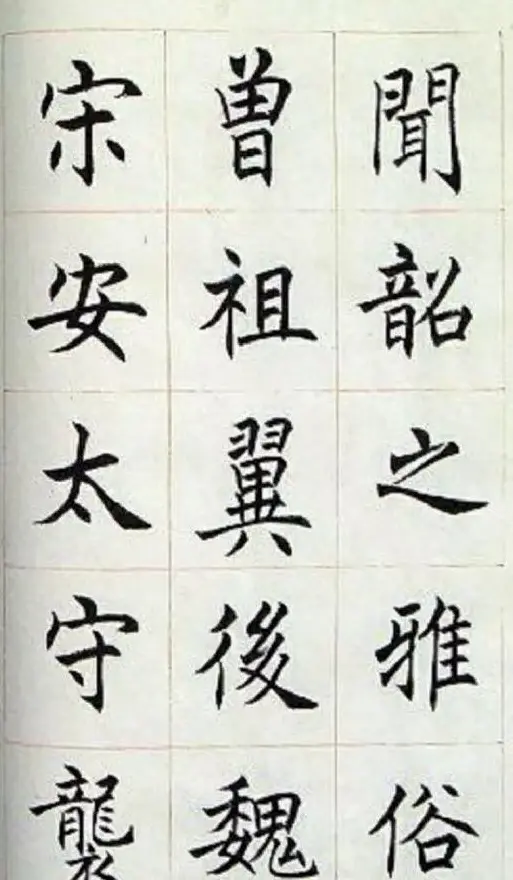 聞韶之雅俗
曾祖翼後魏
宋安太守襲